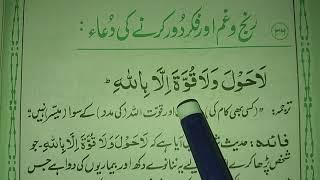 ۳۸
رنج و غم اور فکر دُور کرنے کی دُعاء :
لَاحَوْلَ وَلَا قُوَّةَ اِلَّا بِاللّٰهِ ط
ترجمہ: (کسی بھی کام کی اور قوت اللہ (کی مدد) کے سوا میسر نہیں۔
فائدہ: حدیث میں آیا ہے کہ لَاحَوْلَ وَلَا قُوَّةَ اِلَّا بِاللّٰهِ۔ جو
شخص پڑھا کرے یہ ننانوے دکھ اور بیماریوں کی دوا ہے جس